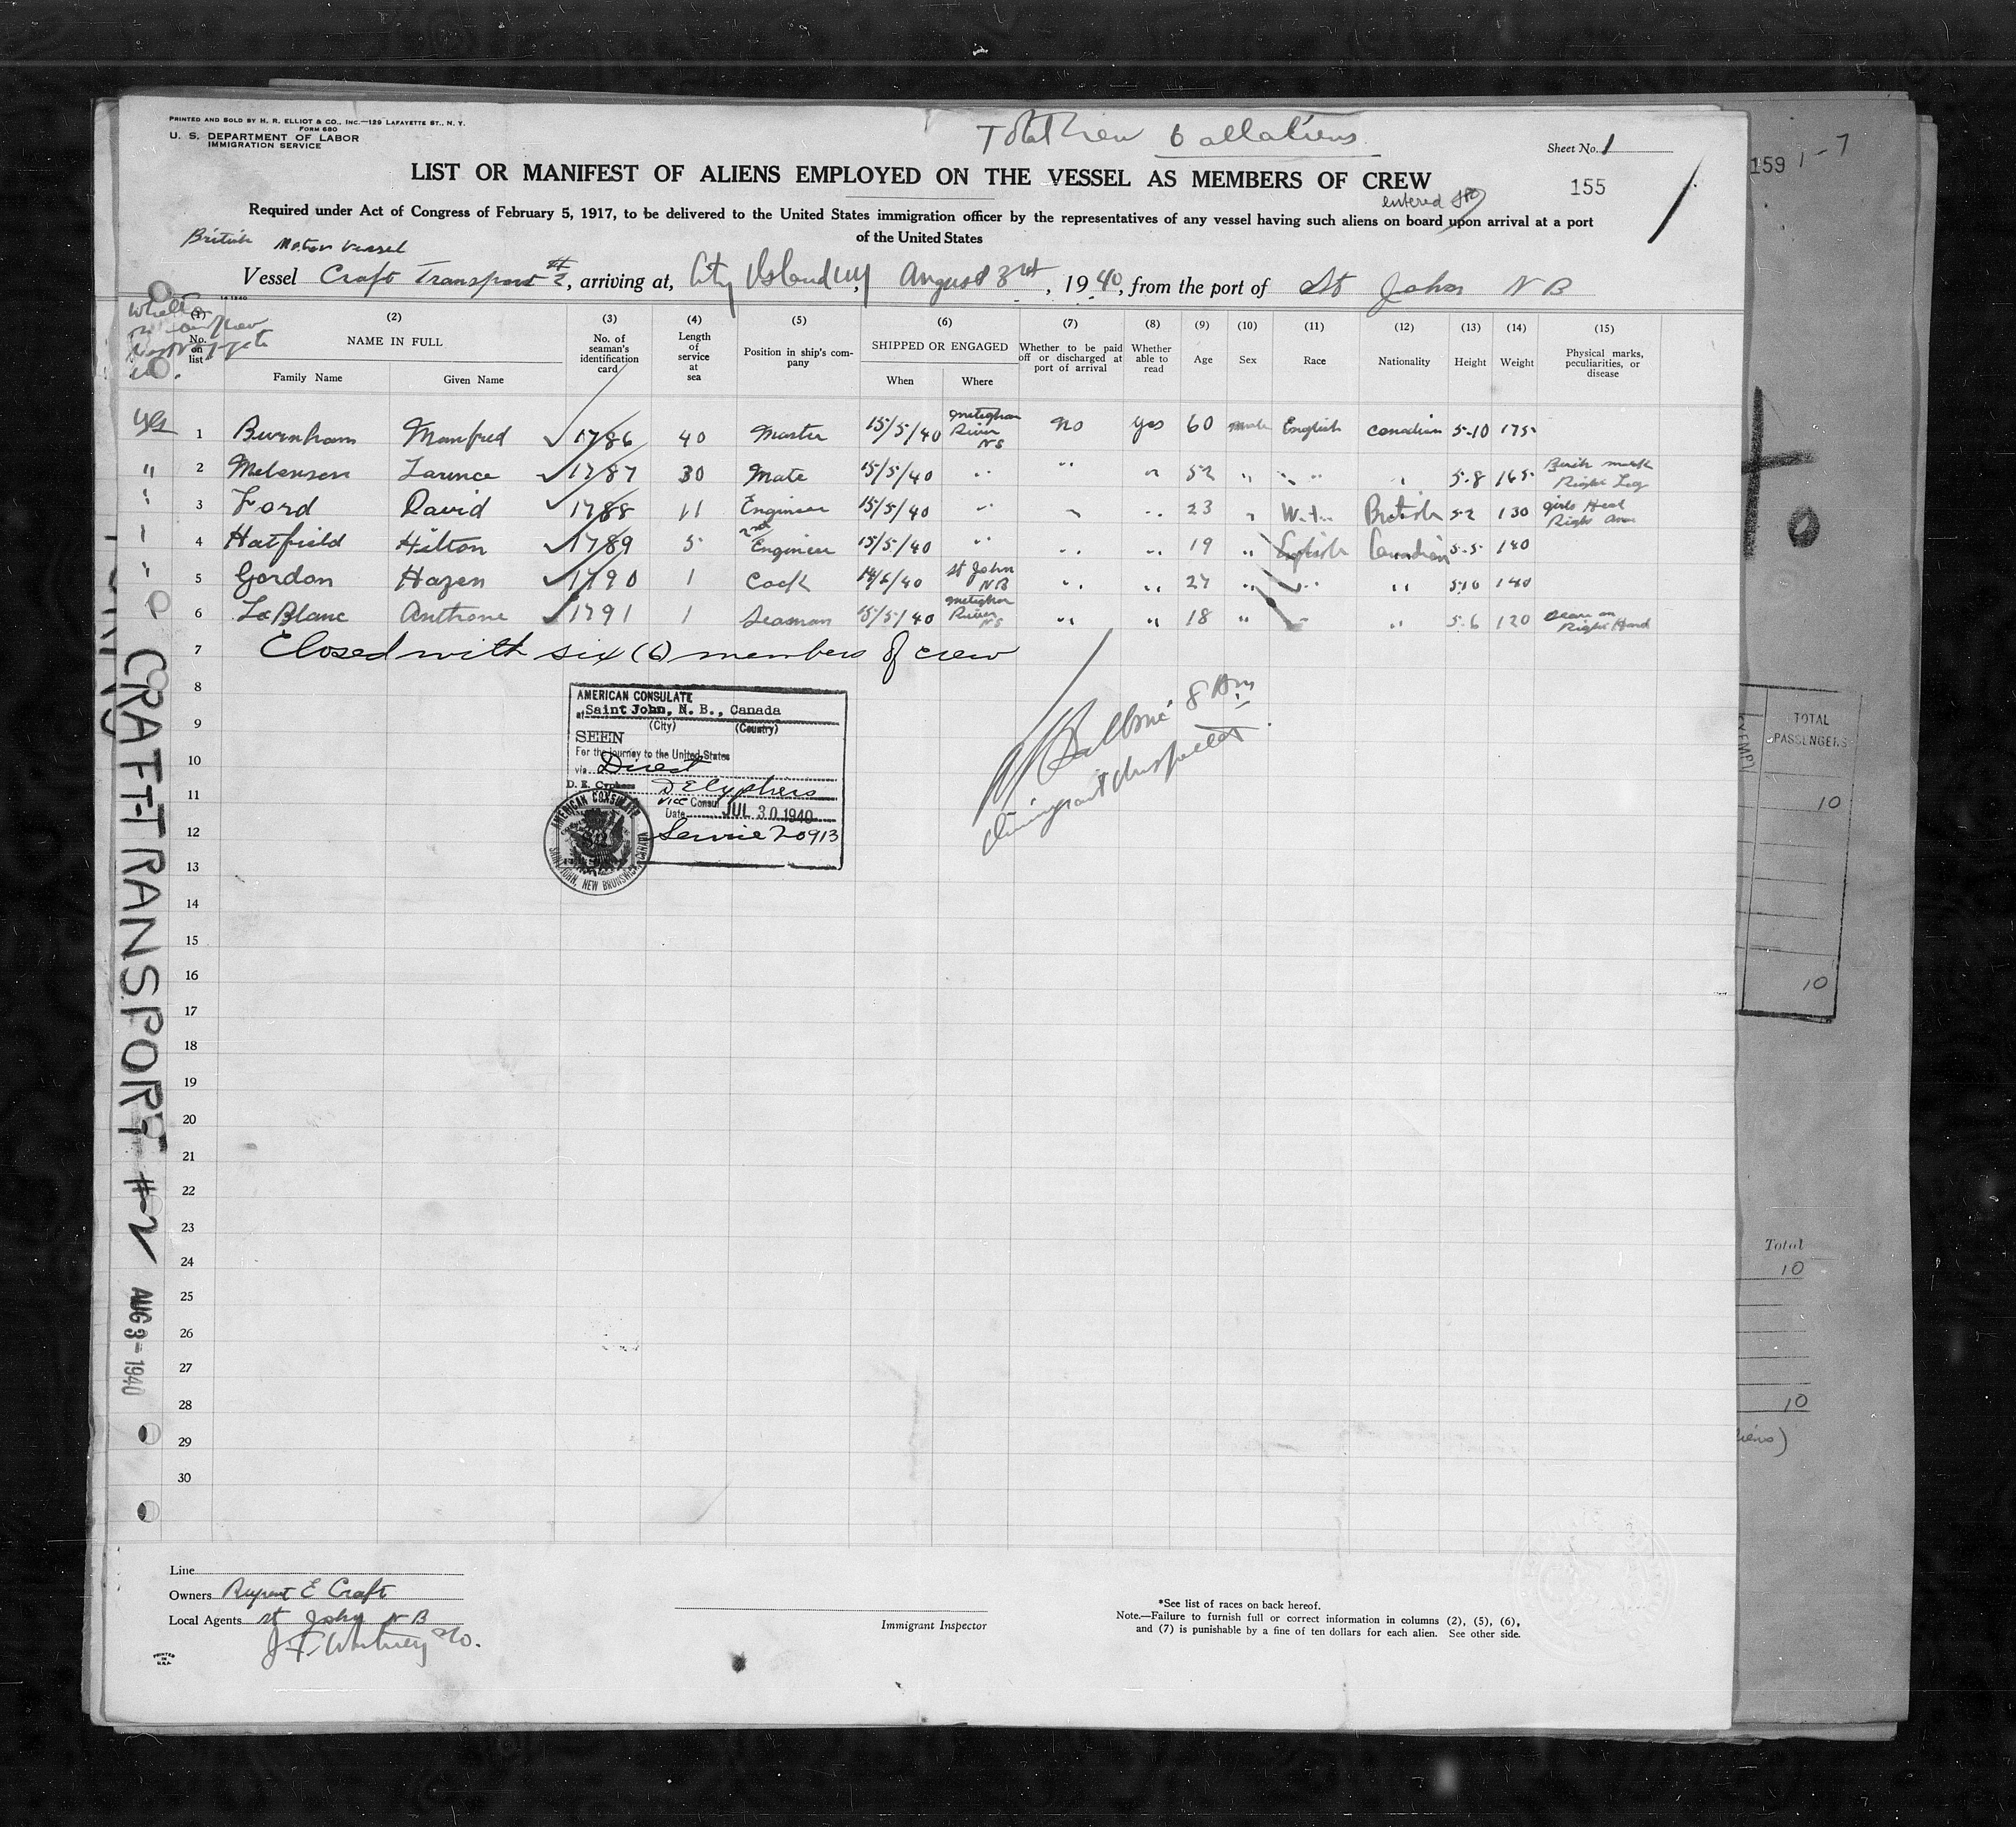 PRINTED AND SOLD BY H. R. ELLIOT & CO., INC.—129 LAFAYETTE ST., N. Y.
FORM 680
U. S. DEPARTMENT OF LABOR
IMMIGRATION SERVICE
6 all aliens
Sheet No. 1
LIST OR MANIFEST OF ALIENS EMPLOYED ON THE VESSEL AS MEMBERS OF CREW
155
159 1-7
entered
Required under Act of Congress of February 5, 1917, to be delivered to the United States immigration officer by the representatives of any vessel having such aliens on board upon arrival at a port
of the United States
British Motor Vessel
Vessel Craft Transport #2, arriving at, City Island NY, August 3rd, 1940, from the port of St John N B
(1) No. on list
(2) NAME IN FULL Family Name Given Name
(3) No. of seaman's identification card
(4) Length of service at sea
(5) Position in ship's company
(6) SHIPPED OR ENGAGED When Where
(7) Whether to be paid off or discharged at port of arrival
(8) Whether able to read
(9) Age
(10) Sex
(11) Race
(12) Nationality
(13) Height
(14) Weight
(15) Physical marks, peculiarities, or disease
yes 1 Burnham Manfred 1786 40 Master 15/5/40 Meteghan River NS No yes 60 male English Canadian 5-10 175
" 2 Melanson Larence 1787 30 Mate 15/5/40 " " " 52 " " " 5-8 165 Birth mark Right Leg
" 3 Ford David 1788 11 Engineer 15/5/40 " " " 23 " British 5-2 130 girls Head Right arm
" 4 Hatfield Hilton 1789 5 2nd Engineer 15/5/40 " " " 19 " English Canadian 5-5 140
" 5 Gordon Hazen 1790 1 Cook 14/6/40 St John NB " " 27 " " " 5-10 140
6 LeBlanc Anthone 1791 1 Seaman 15/5/40 Meteghan River NS " " 18 " " " 5-6 120 Scar on Right Hand
7 Closed with six (6) members of crew
8
9
10
11
12
13
14
15
16
17
18
19
20
21
22
23
24
25
26
27
28
29
30
AMERICAN CONSULATE
at Saint John, N. B., Canada
(City) (Country)
SEEN
For the journey to the United States
via Direct
D. E. Cyphers
D E Cyphers
Vice Consul
Date JUL 30 1940
Service No 913
AMERICAN CONSULATE
SAINT JOHN, NEW BRUNSWICK, CANADA
8 am
Immigrant Inspector
CRAFT-TRANSPORT #2
AUG 3 - 1940
TOTAL
PASSENGERS
10
10
Total
10
10
Line
Owners Rupert E Craft
Local Agents St John N B
J. F. Whitney Co.
Immigrant Inspector
*See list of races on back hereof.
Note.—Failure to furnish full or correct information in columns (2), (5), (6),
and (7) is punishable by a fine of ten dollars for each alien. See other side.
PRINTED
IN
U.S.A.